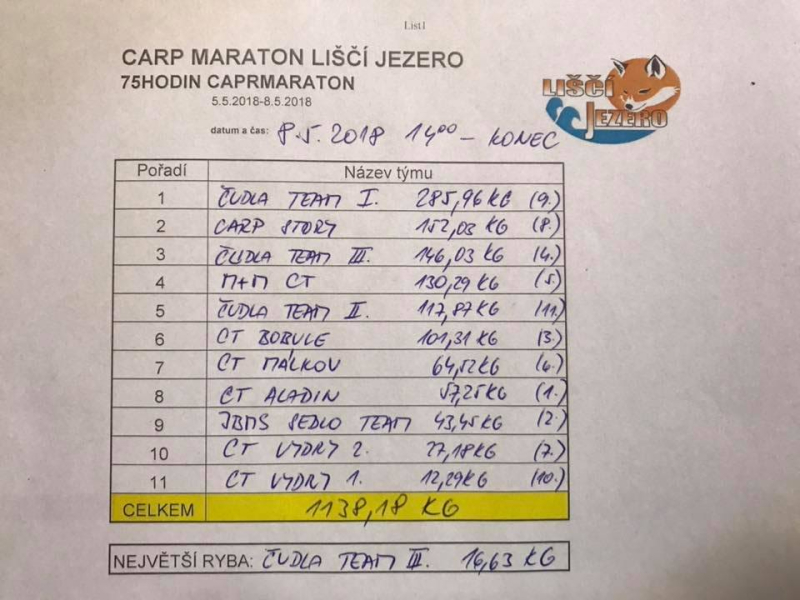 List1
CARP MARATON LIŠČÍ JEZERO
75HODIN CAPRMARATON
5.5.2018-8.5.2018
LIŠČÍ
JEZERO
datum a čas: 8.5.2018 14⁰⁰ - KONEC
Pořadí Název týmu
1 ČUDLA TEAM I. 285,96 KG (9.)
2 CARP STORY 152,03 KG (8.)
3 ČUDLA TEAM III. 146,03 KG (4.)
4 M+M CT 130,29 KG (5.)
5 ČUDLA TEAM II. 117,87 KG (11.)
6 CT BOBULE 101,31 KG (3.)
7 CT MÁLKOV 64,52 KG (6.)
8 CT ALADIN 57,25 KG (1.)
9 JBMS SEDLO TEAM 43,45 KG (2.)
10 CT VYDRY 2. 27,18 KG (7.)
11 CT VYDRY 1. 12,29 KG (10.)
CELKEM 1138,18 KG
NEJVĚTŠÍ RYBA: ČUDLA TEAM III. 16,63 KG